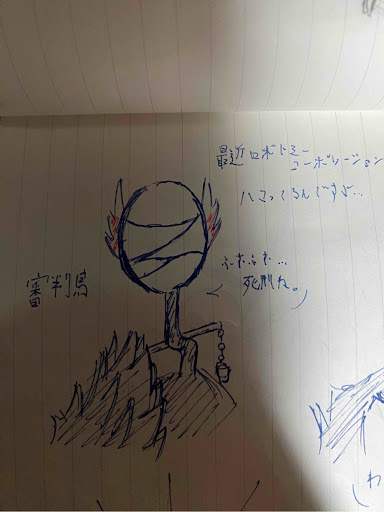 最近ロボトミー
コーポレーション
ハマってるんですよ...
審判鳥
ふむふむ...
死刑ね。
わ